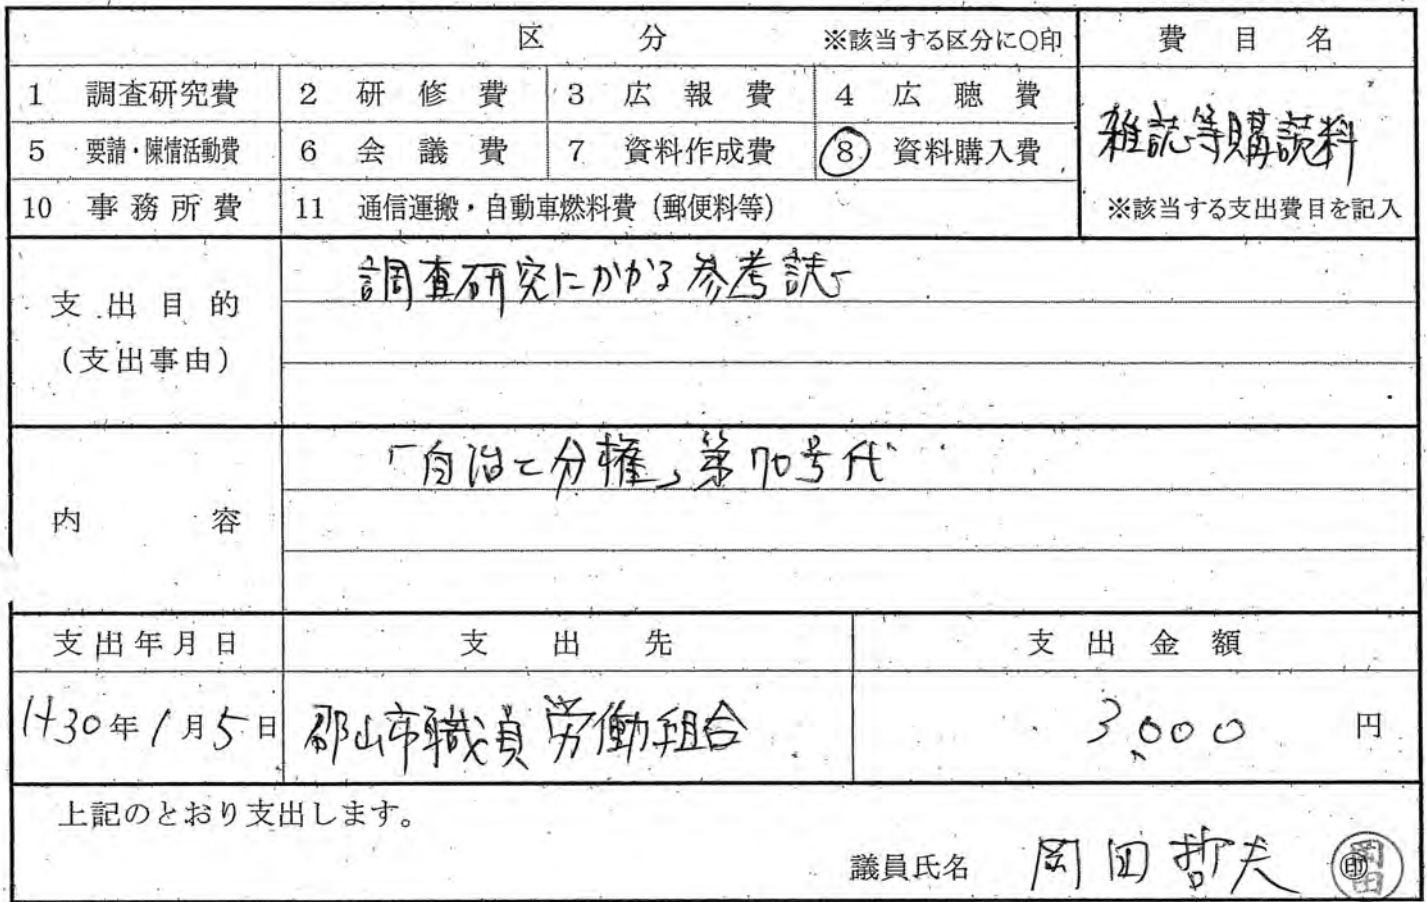 区 分 ※該当する区分に○印 費 目 名
1 調査研究費 2 研 修 費 3 広 報 費 4 広 聴 費
雑誌等購読料
5 要請・陳情活動費 6 会 議 費 7 資料作成費 8 資料購入費
10 事 務 所 費 11 通信運搬・自動車燃料費（郵便料等） ※該当する支出費目を記入
支 出 目 的
（支出事由）
調査研究にかかる参考誌
内 容
「自治と分権」第70号代
支出年月日 支 出 先 支 出 金 額
H30年1月5日 郡山市職員労働組合 3,000 円
上記のとおり支出します。
議員氏名 岡田哲夫 印 岡田